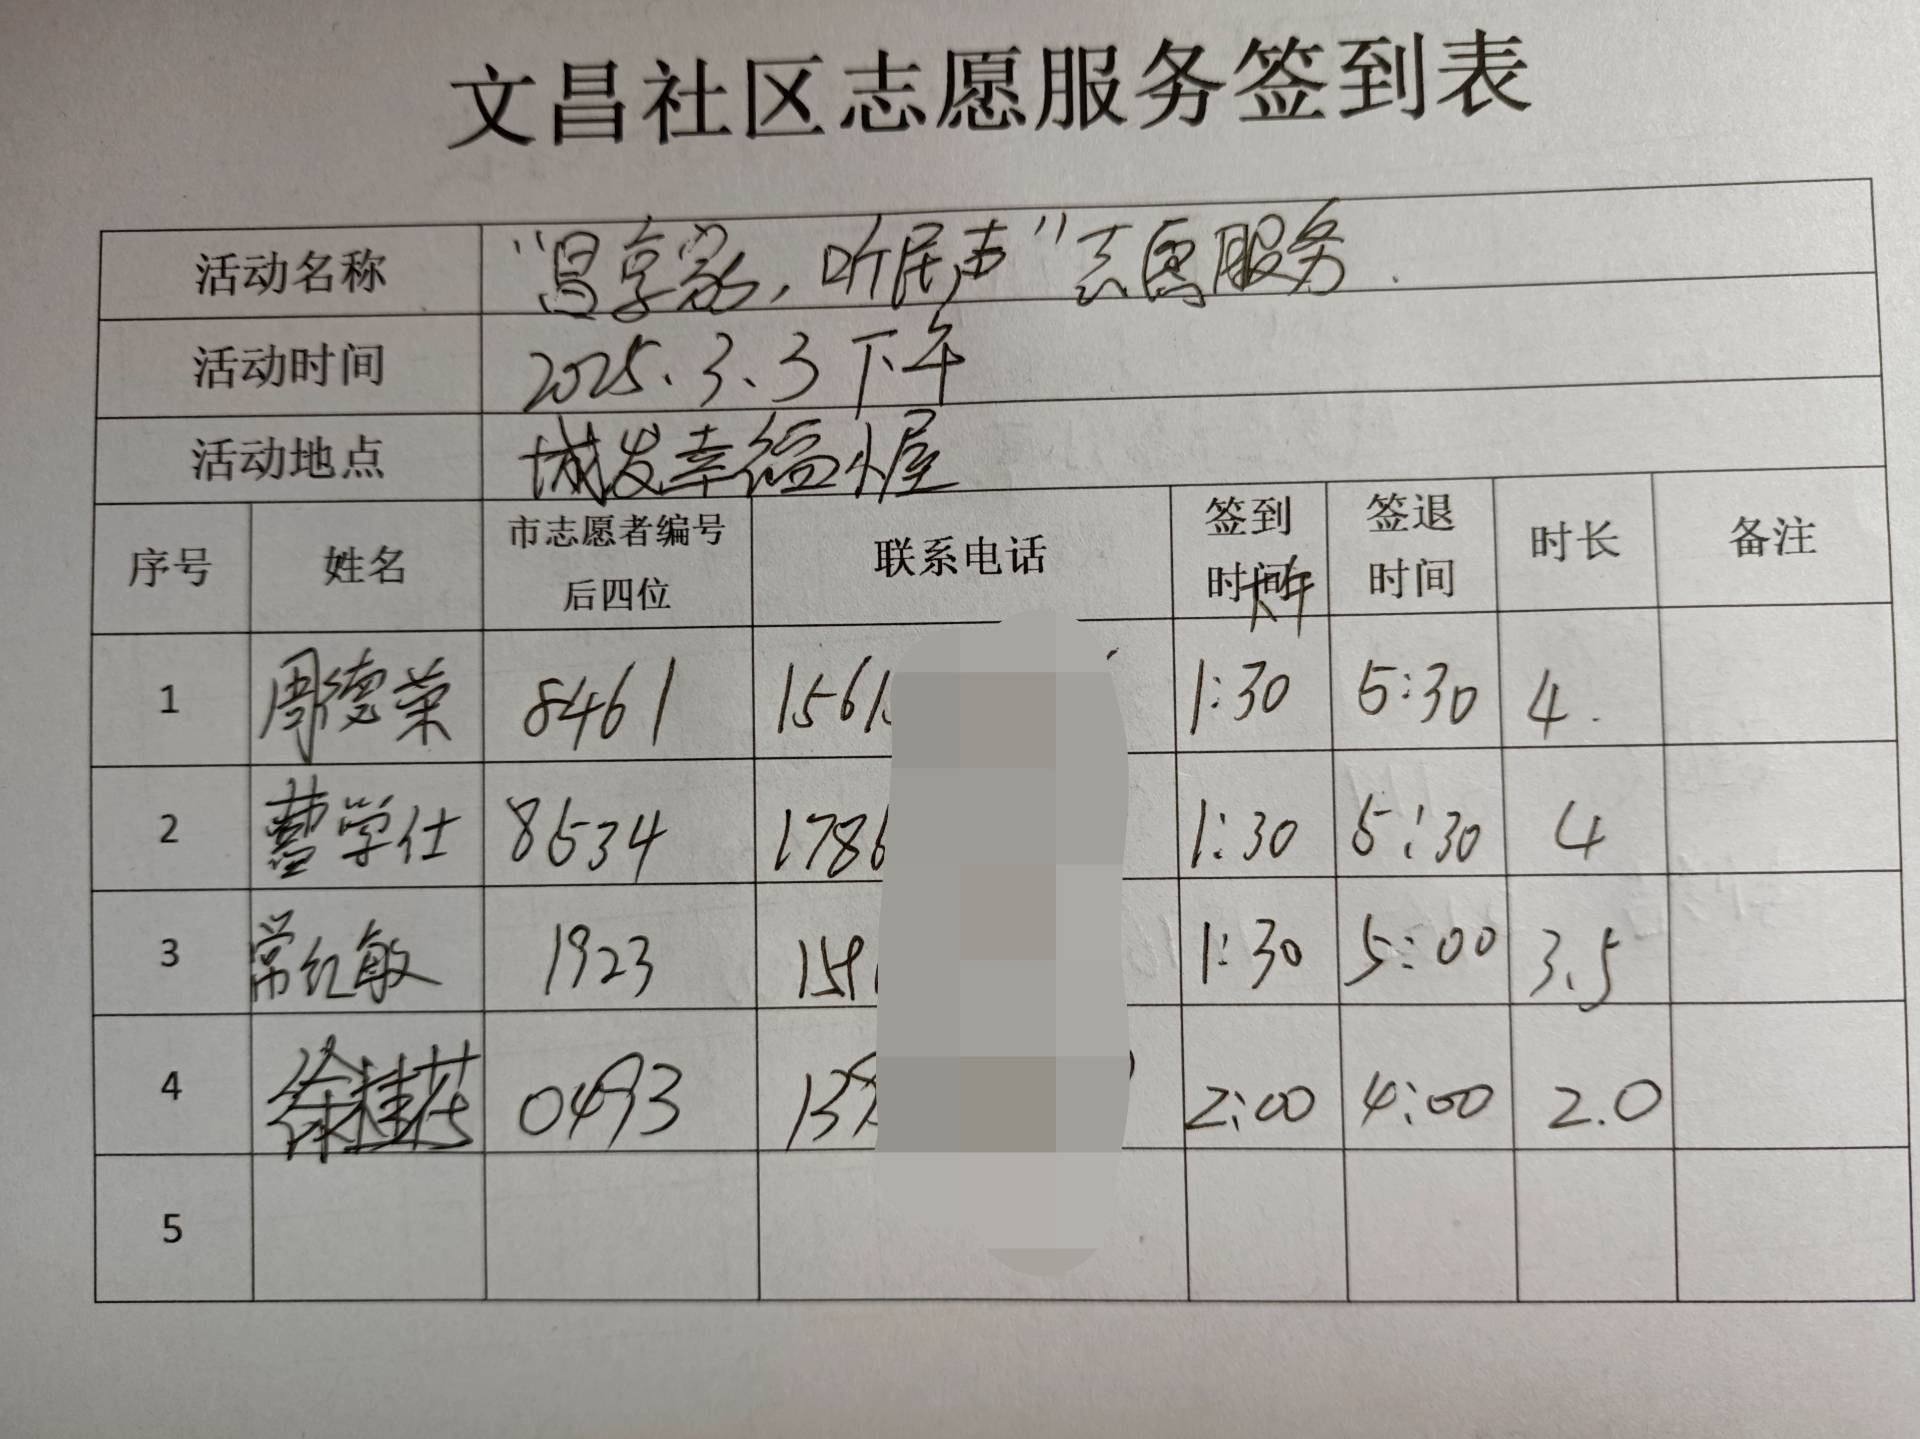 文昌社区志愿服务签到表
活动名称 “昌享家，听民声”志愿服务.
活动时间 2025、3、3下午
活动地点 城发幸福小屋
序号 姓名 市志愿者编号后四位 联系电话 签到时间 下午 签退时间 时长 备注
1 周德荣 8461 1561 1:30 5:30 4.
2 曹学仕 8534 1786 1:30 5:30 4
3 常红敏 1923 159 1:30 5:00 3.5
4 徐桂花 0493 13 2:00 4:00 2.0
5